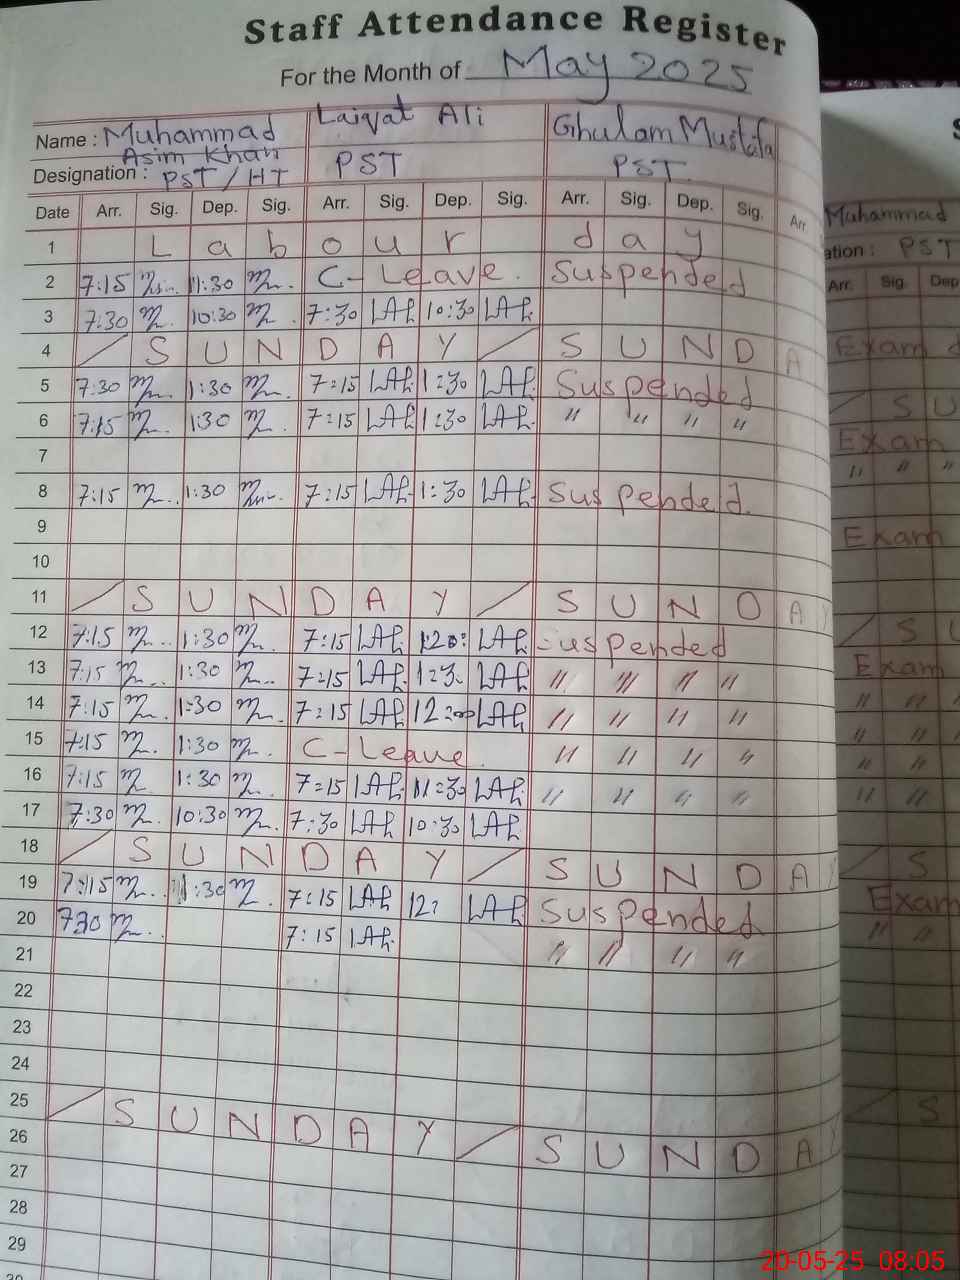 Staff Attendance Register
For the Month of May 2025
Name : Muhammad Asim Khan Laiqat Ali Ghulam Mustafa
Designation : PST / HT PST PST.
Date Arr. Sig. Dep. Sig. Arr. Sig. Dep. Sig. Arr. Sig. Dep. Sig. Arr.
1 Labour day
2 7:15 11:30 C-Leave. Suspended
3 7:30 10:30 7:30 LAL 10:30 LAL
4 / SUNDAY / SUNDA
5 7:30 1:30 7:15 LAL 1:30 LAL Suspended
6 7:15 1:30 7:15 LAL 1:30 LAL " " " "
7
8 7:15 1:30 7:15 LAL 1:30 LAL Suspended.
9
10
11 / SUNDAY / SUNDAY
12 7:15 1:30 7:15 LAL LAL Suspended
13 7:15 1:30 7:15 LAL LAL " " " "
14 7:15 1:30 7:15 LAL 12:00 LAL " " " "
15 7:15 1:30 C-Leave. " " " "
16 7:15 1:30 7:15 LAL 11:30 LAL " " " "
17 7:30 10:30 7:30 LAL 10:30 LAL
18 / SUNDAY / SUNDAY
19 7:15 1:30 7:15 LAL 12: LAL Suspended
20 730 7:15 LAL " " " "
21
22
23
24
25 / SUNDAY / SUNDAY
26
27
28
29
30
S
Muhammad
ation : PST
Arr. Sig. Dep
Exam
/ S U
Exam
" " "
Exam
/ S U
Exam
" " "
" "
" "
" "
/ S
Exam
" "
/ S
20-05-25 08:05